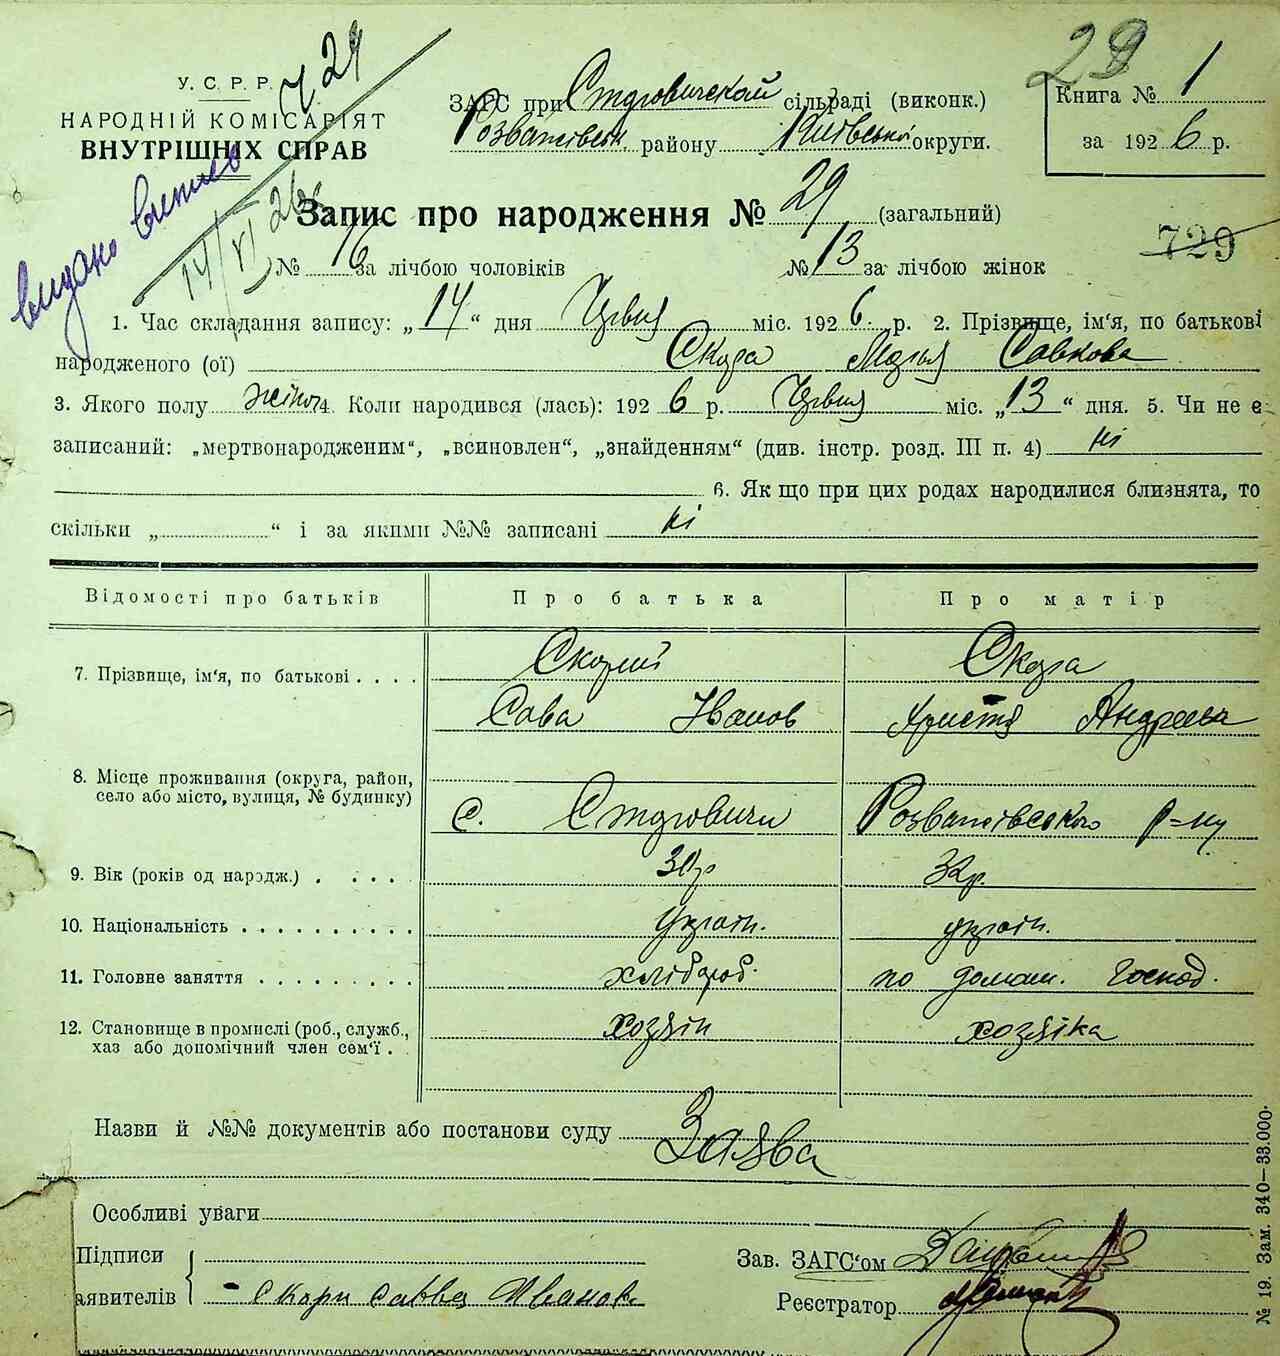 29
У. С. Р. Р.
НАРОДНІЙ КОМІСАРІЯТ
ВНУТРІШНІХ СПРАВ
видано
14/VI 26
ЗАГС при сільраді (виконк.)
району Київської округи.
Книга № 1
за 1926 р.
Запис про народження № 29 (загальний)
729
№ 16 за лічбою чоловіків № 13 за лічбою жінок
1. Час складання запису: „14“ дня міс. 1926 р. 2. Прізвище, ім'я, по батькові
народженого (ої) Скора Марья Савкова
3. Якого полу жіноч. 4. Коли народився (лась): 1926 р. міс. „13“ дня. 5. Чи не є
записаний: „мертвонародженим“, „всиновлен“, „знайденням“ (див. інстр. розд. III п. 4) ні
6. Як що при цих родах народилися близнята, то
скільки „ “ і за якими №№ записані ні
Відомості про батьків Про батька Про матір
7. Прізвище, ім'я, по батькові Скорий Скора
Сава Іванов Христя Андреева
8. Місце проживання (округа, район,
село або місто, вулиця, № будинку) с. Розважівського р-ну
9. Вік (років од народж.) 32р.
10. Національність україн. україн.
11. Головне заняття хлібороб. по домаш. господ.
12. Становище в промислі (роб., служб., хозяін хозяіка
хаз або допомічний член сем'ї
Назви й №№ документів або постанови суду Заява
Особливі уваги
Підписи
аявителів Скори Савва Иванов
Зав. ЗАГС'ом
Реєстратор
№ 19. Зам. 340—33.000.